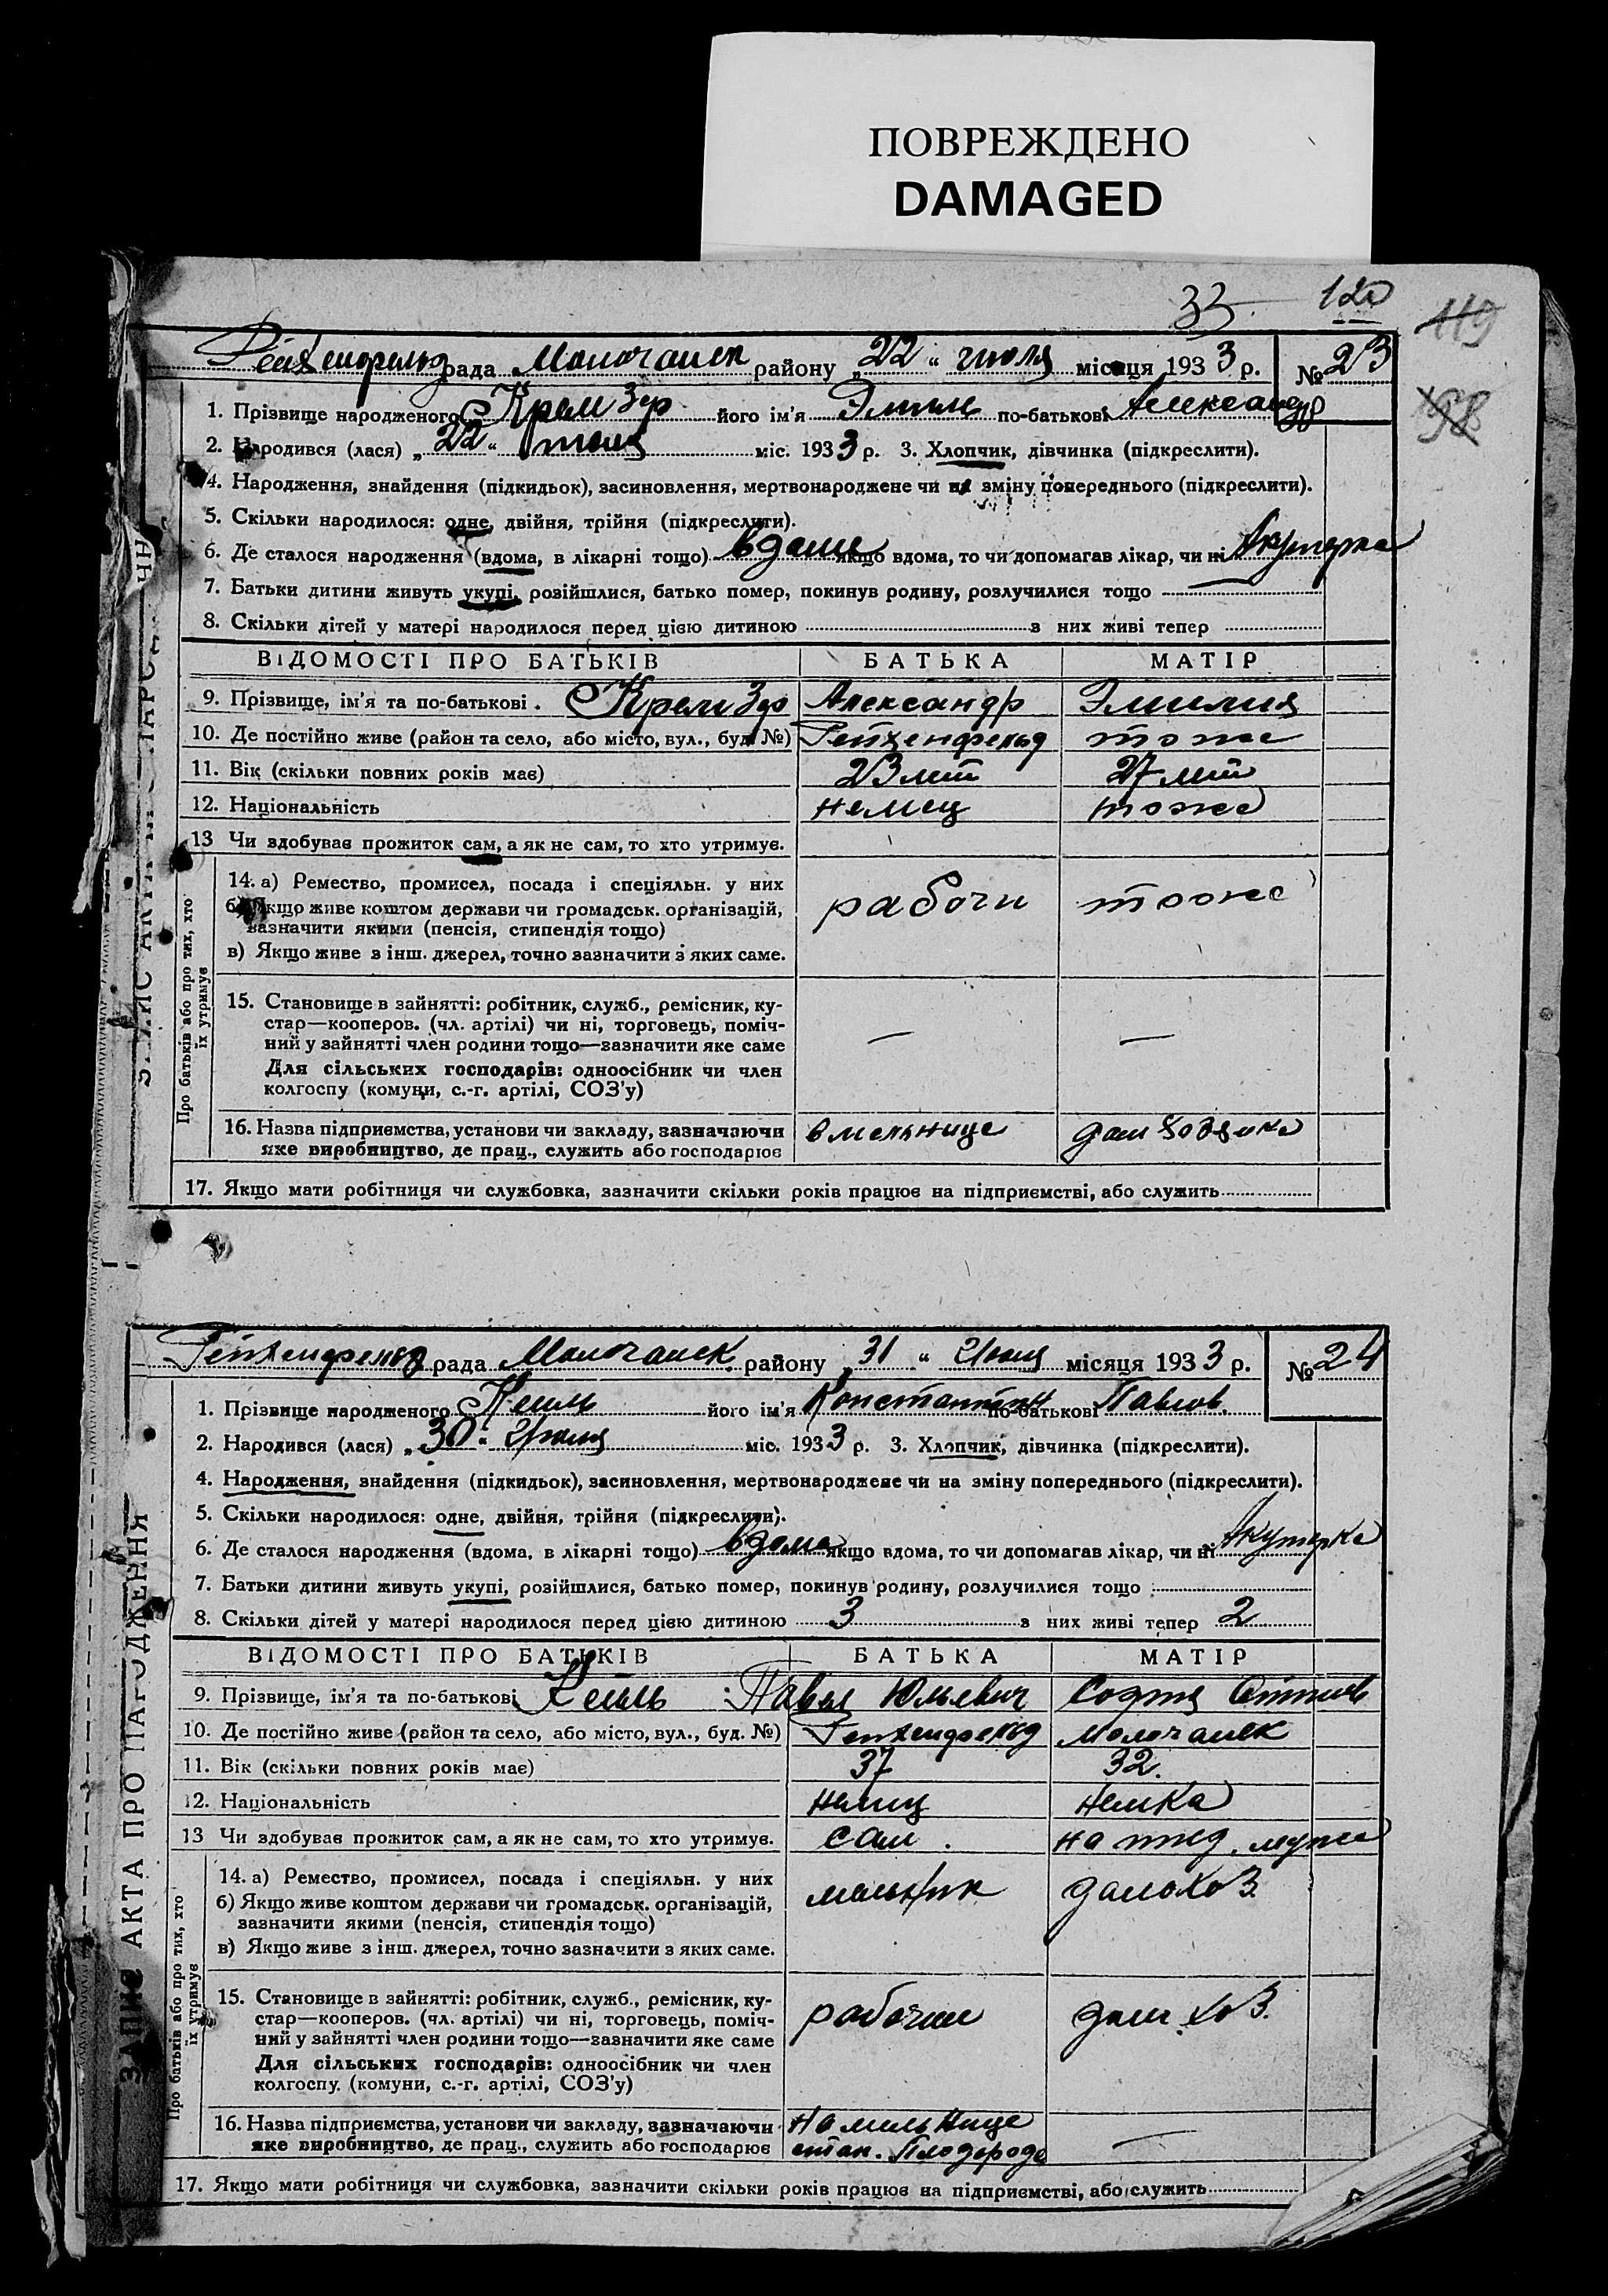 ПОВРЕЖДЕНО
DAMAGED
33.
120
119
98
рада Молочанск району „22“ июля місяця 1933 р. № 23
1. Прізвище народженого Кремзер його ім'я по-батькові Александр
2. Народився (лася) „22“ июля міс. 1933 р. 3. Хлопчик, дівчинка (підкреслити).
4. Народження, знайдення (підкидьок), засиновлення, мертвонароджене чи на зміну попереднього (підкреслити).
5. Скільки народилося: одне, двійня, трійня (підкреслити).
6. Де сталося народження (вдома, в лікарні тощо) вдома якщо вдома, то чи допомагав лікар, чи ні Акушерка
7. Батьки дитини живуть укупі, розійшлися, батько помер, покинув родину, розлучилися тощо —
8. Скільки дітей у матері народилося перед цією дитиною з них живі тепер
ВІДОМОСТІ ПРО БАТЬКІВ БАТЬКА МАТІР
9. Прізвище, ім'я та по-батькові. Кремзер Александр Эмилия
10. Де постійно живе (район та село, або місто, вул., буд. №) Рейхенфельд тоже
11. Вік (скільки повних років має) 23 лет 27 лет
12. Національність немец тоже
13 Чи здобував прожиток сам, а як не сам, то хто утримує.
14. а) Ремество, промисел, посада і спеціяльн. у них рабочи тоже
б) Якщо живе коштом держави чи громадськ. організацій,
зазначити якими (пенсія, стипендія тощо)
в) Якщо живе з інш. джерел, точно зазначити з яких саме.
Про батьків або про тих, хто
їх утримує
15. Становище в зайнятті: робітник, служб., ремісник, ку-
стар—кооперов. (чл. артілі) чи ні, торговець, поміч-
ний у зайнятті член родини тощо—зазначити яке саме — —
Для сільських господарів: одноосібник чи член
колгоспу (комуни, с.-г. артілі, СОЗ'у)
16. Назва підприємства, установи чи закладу, зазначаючи в мельнице дом
яке виробництво, де прац., служить або господарює
17. Якщо мати робітниця чи службовка, зазначити скільки років працює на підприємстві, або служить
Рейхенфельд рада Молочанск району „31“ Июля місяця 1933 р. № 24
1. Прізвище народженого його ім'я Константин по-батькові Павлов.
2. Народився (лася) „30“ Июля міс. 1933 р. 3. Хлопчик, дівчинка (підкреслити).
4. Народження, знайдення (підкидьок), засиновлення, мертвонароджене чи на зміну попереднього (підкреслити).
5. Скільки народилося: одне, двійня, трійня (підкреслити).
6. Де сталося народження (вдома, в лікарні тощо) вдома якщо вдома, то чи допомагав лікар, чи ні Акушерка
7. Батьки дитини живуть укупі, розійшлися, батько помер, покинув родину, розлучилися тощо
8. Скільки дітей у матері народилося перед цією дитиною 3 з них живі тепер 2
ВІДОМОСТІ ПРО БАТЬКІВ БАТЬКА МАТІР
9. Прізвище, ім'я та по-батькові Павел Юльевич София
10. Де постійно живе (район та село, або місто, вул., буд. №) Рейхенфельд Молочанск
11. Вік (скільки повних років має) 37 32.
12. Національність немец немка
13 Чи здобував прожиток сам, а як не сам, то хто утримує. сам. на ижд. мужа
14. а) Ремество, промисел, посада і спеціяльн. у них мельник домохоз.
б) Якщо живе коштом держави чи громадськ. організацій,
зазначити якими (пенсія, стипендія тощо)
в) Якщо живе з інш. джерел, точно зазначити з яких саме.
Про батьків або про тих, хто
їх утримує
15. Становище в зайнятті: робітник, служб., ремісник, ку-
стар—кооперов. (чл. артілі) чи ні, торговець, поміч- рабочий дом. хоз.
ний у зайнятті член родини тощо—зазначити яке саме
Для сільських господарів: одноосібник чи член
колгоспу. (комуни, с.-г. артілі, СОЗ'у)
16. Назва підприємства, установи чи закладу, зазначаючи на мельнице —
яке виробництво, де прац., служить або господарює стан. Плодородие
17. Якщо мати робітниця чи службовка, зазначити скільки років працює на підприємстві, або служить
ЗАПИС АКТА ПРО НАРОДЖЕННЯ